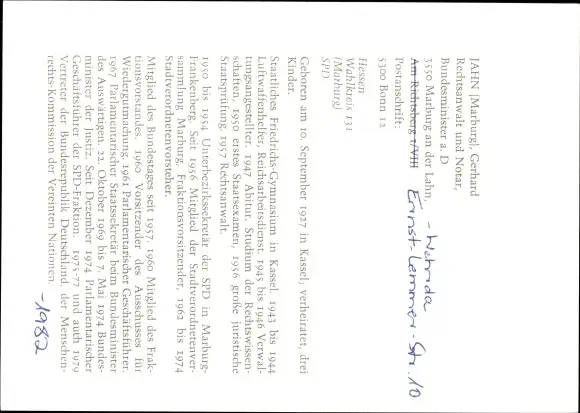 JAHN (Marburg), Gerhard
Rechtsanwalt und Notar,
Bundesminister a. D
3550 Marburg an der Lahn, - Wehrda
Am Rechtsberg 1/VIII Ernst-Lemmer-Str. 10
Postanschrift:
5300 Bonn 12
Hessen
Wahlkreis 131
(Marburg)
SPD
Geboren am 10. September 1927 in Kassel; verheiratet, drei
Kinder.
Staatliches Friedrichs-Gymnasium in Kassel. 1943 bis 1944
Luftwaffenhelfer, Reichsarbeitsdienst. 1945 bis 1946 Verwal-
tungsangestellter. 1947 Abitur. Studium der Rechtswissen-
schaften, 1950 erstes Staatsexamen, 1956 große juristische
Staatsprüfung. 1957 Rechtsanwalt.
1950 bis 1954 Unterbezirkssekretär der SPD in Marburg-
Frankenberg. Seit 1956 Mitglied der Stadtverordnetenver-
sammlung Marburg, Fraktionsvorsitzender, 1962 bis 1974
Stadtverordnetenvorsteher.
Mitglied des Bundestages seit 1957. 1960 Mitglied des Frak-
tionsvorstandes. 1960 Vorsitzender des Ausschusses für
Wiedergutmachung, 1961 Parlamentarischer Geschäftsführer.
1967 Parlamentarischer Staatssekretär beim Bundesminister
des Auswärtigen. 22. Oktober 1969 bis 7. Mai 1974 Bundes-
minister der Justiz. Seit Dezember 1974 Parlamentarischer
Geschäftsführer der SPD-Fraktion. 1975-77 und auch 1979
Vertreter der Bundesrepublik Deutschland in der Menschen-
rechts-Kommission der Vereinten Nationen. - 1982